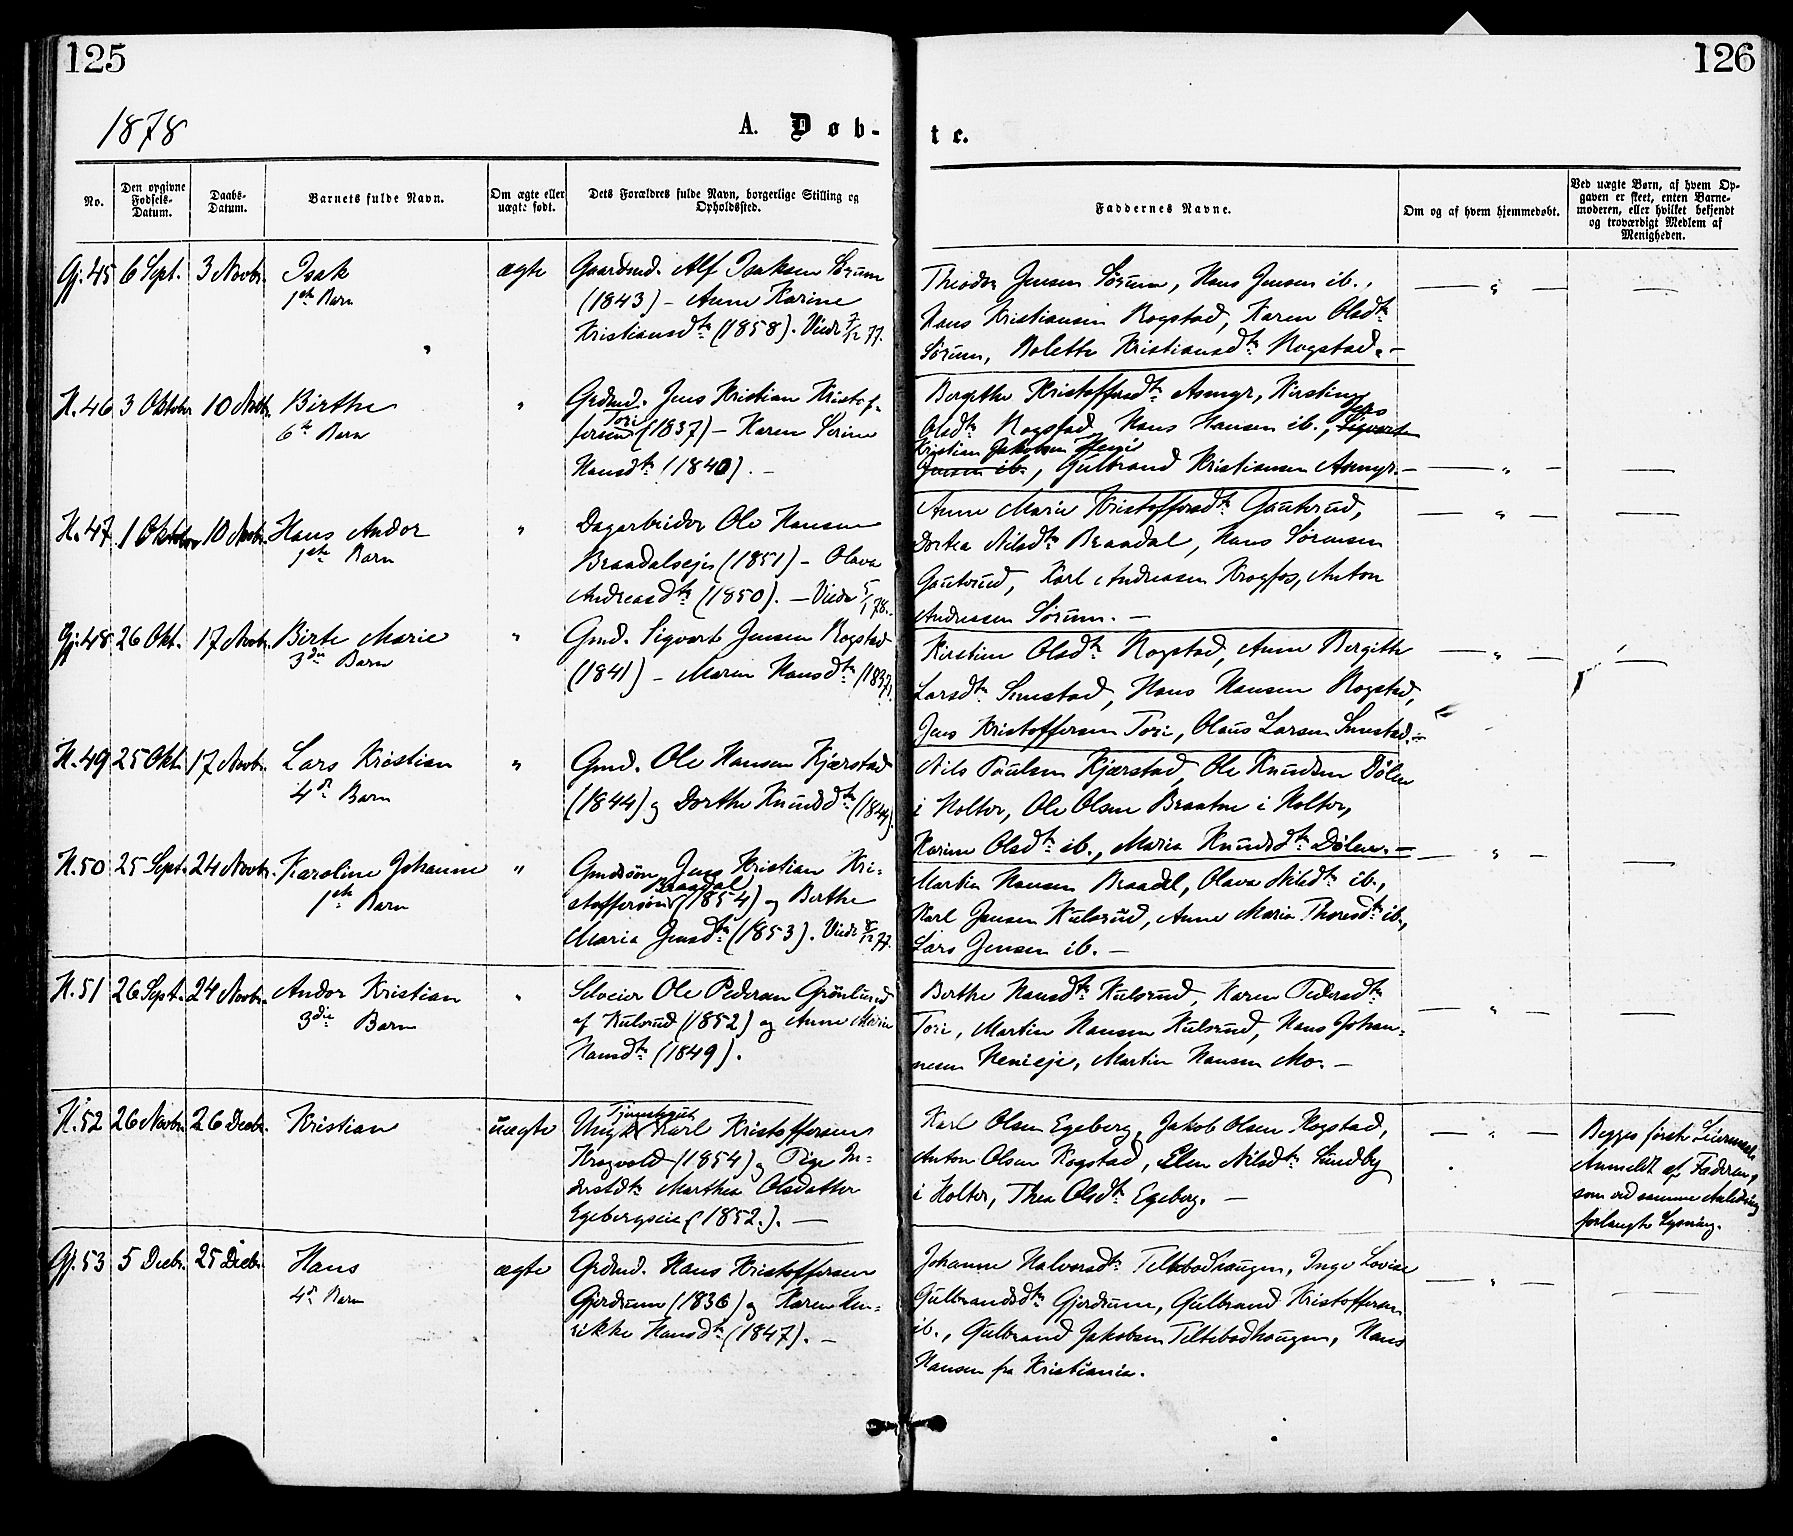 125
126
1878
A. Døb-
te.
No.
Den opgivne Fødsels-Datum.
Daabs-Datum.
Barnets fulde Navn.
Om ægte eller uægte født.
Dets Forældres fulde Navn, borgerlige Stilling og Opholdssted.
Faddernes Navne.
Om og af hvem hjemmedøbt.
Ved uægte Børn, af hvem Opgaven er skeet, enten Barnemoderen, eller hvilket bekjendt og troværdigt Medlem af Menigheden.
Gj. 45 6 Sept. 3 Novbr. Isak ægte Gaardmd. Alf Isaksen Sørum
1ste Barn (1843) – Anne Karine
Kristiansdtr (1858). Viede 7/12 77.
Theodor Jensen Sørum, Hans Jensen ib.,
Hans Kristiansen Rogstad, Karen Olsdtr
Sørum, Bolette Kristiansdtr Rogstad. –
H. 46 3 Oktobr 10 Novbr. Birthe " Grdmd. Jens Kristian Kristof-
6te Barn fersen Tori (1837) – Karen Serine
Hansdtr (1840). –
Bergithe Kristoffersdtr Asmyr, Kirstine
Olsdtr Rogstad, Hans Hansen ib., Sigvart Jens
Jensen ib. Kristian Jakobsen, Gulbrand Kristiansen Asmyr. –
H. 47 1 Oktober 10 Novbr. Hans Andor " Dagarbeider Ole Hansen
1ste Barn Braadalseje (1851) – Olava
Andreasdtr (1850). – Viede 5/1 78.
Anne Marie Kristoffersdtr Gauterud,
Dortea Nilsdtr Braadal, Hans Sørensen
Gauterud, Karl Andreasen Krogfos, Anton
Andreasen Sørum. –
Gj. 48 26 Okt. 17 Novbr. Birte Marie " Gmd. Sigvart Jensen Rogstad
3die Barn (1841) – Maren Hansdtr (1837).
Kirstine Olsdtr Rogstad, Anne Bergitte
Larsdtr Smestad, Hans Hansen Rogstad,
Jens Kristoffersen Tori, Olaus Larsen Smestad. –
H. 49 25 Okt. 17 Novbr. Lars Kristian " Gmd. Ole Hansen Kjærstad
4de Barn (1844) og Dorthe Knudsdtr (1849).
Nils Paulsen Kjærstad, Ole Knudsen Dølen
i Holter, Ole Olsen Braaten i Holter,
Karine Olsdtr ib., Maria Knudsdtr Dølen. –
H. 50 25 Sept. 24 Novbr. Karoline Johanne " Gmdsøn Jens Kristian Kri-
1ste Barn stoffersøn Braadal (1854) og Berthe
Maria Jensdtr (1853). Viede 8/12 77.
Martin Hansen Braadal, Olava Nilsdtr ib.,
Karl Jensen Kulsrud, Anne Maria Thoresdtr ib.,
Lars Jensen ib. –
H. 51 26 Sept. 24 Novbr. Andor Kristian " Selveier Ole Pedersen Grønlund
3die Barn af Kulsrud (1852) og Anne Marie
Hansdtr (1849).
Berthe Hansdtr Kulsrud, Karen Pedersdtr
Tori, Martin Hansen Kulsrud, Hans Johan-
nesen Henieje, Martin Hansen Mo. –
H. 52 26 Novbr. 26 Decbr. Kristian uægte Ungk. Tjenestegut Karl Kristoffersen
Krogvold (1854) og Pige In-
derstdtr Marthea Olsdatter
Egebergseie (1852.). –
Karl Olsen Egeberg, Jakob Olsen Rogstad,
Anton Olsen Rogstad, Elen Nilsdtr Sundby
i Holter, Thea Olsdtr Egeberg. –
Begges første Leiermaal.
Anmeldt af Faderen,
som ved samme Anledning
forlangte Lysning.
Gj. 53 5 Decbr. 25 Decbr. Hans ægte Grdmd. Hans Kristoffersen
4de Barn Gjerdrum (1836) og Karen Hen-
rikke Hansdtr (1847). –
Johanne Halvorsdtr Teltebodhaugen, Inge Lovise
Gulbrandsdtr Gjerdrum, Gulbrand Kristoffersen
ib., Gulbrand Jakobsen Teltebodhaugen, Hans
Hansen fra Kristiania.